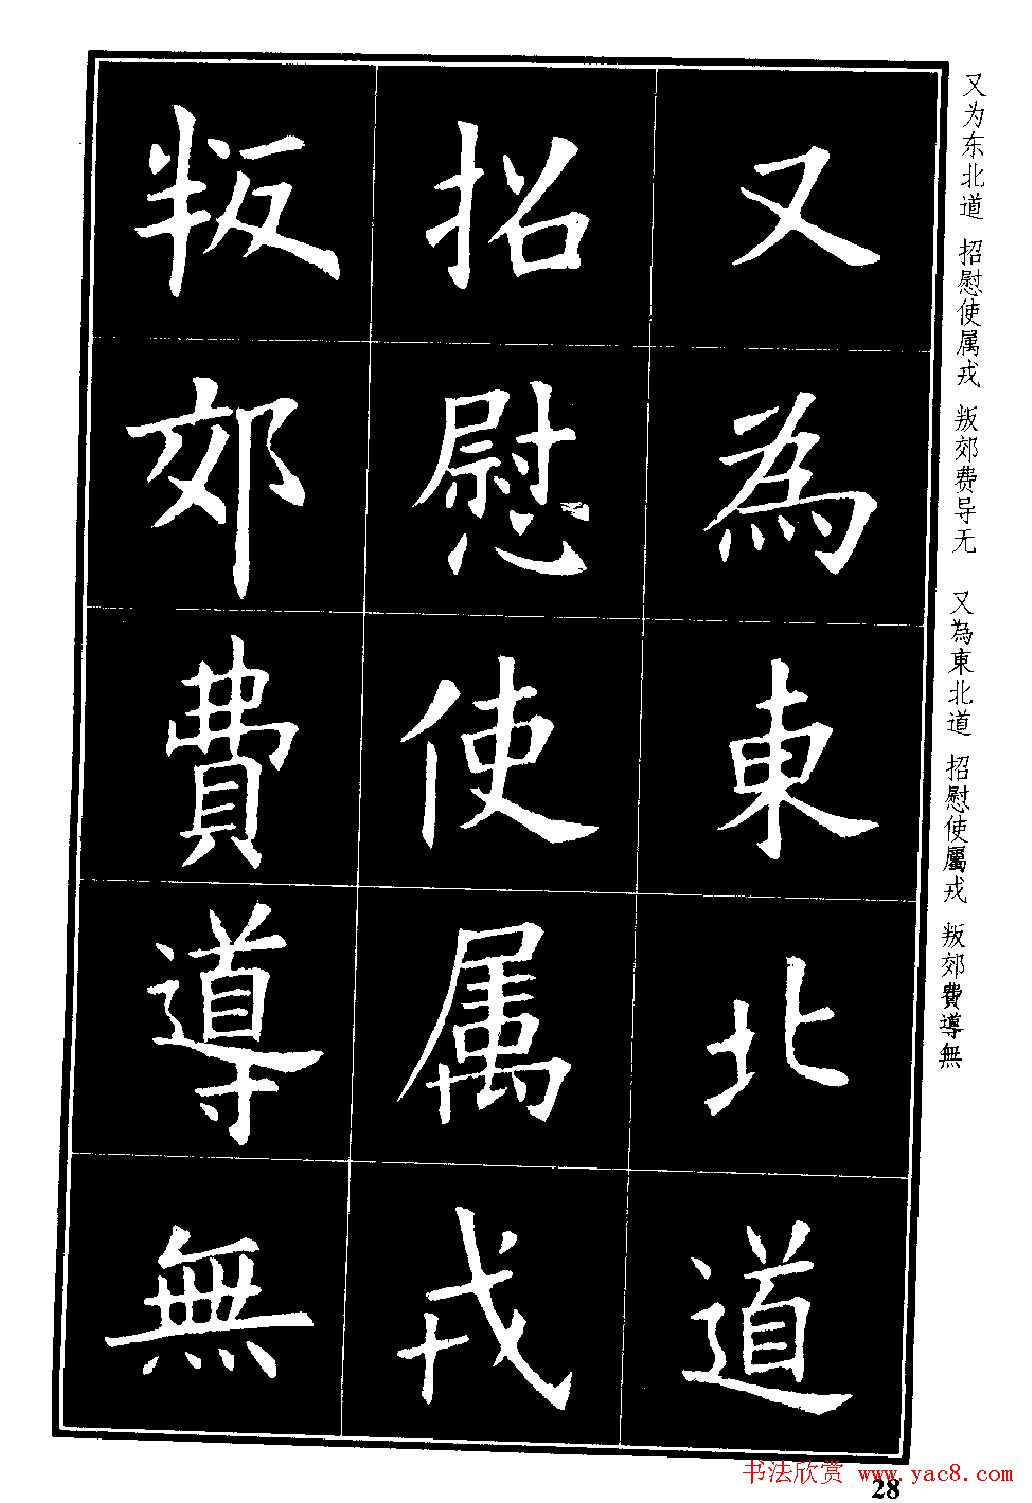 又為東北道
招慰使属戎
叛郊費導無
又为东北道 招慰使属戎 叛郊费导无 又為東北道 招慰使屬戎 叛郊費導無
书法欣赏 www.yac8.com
28